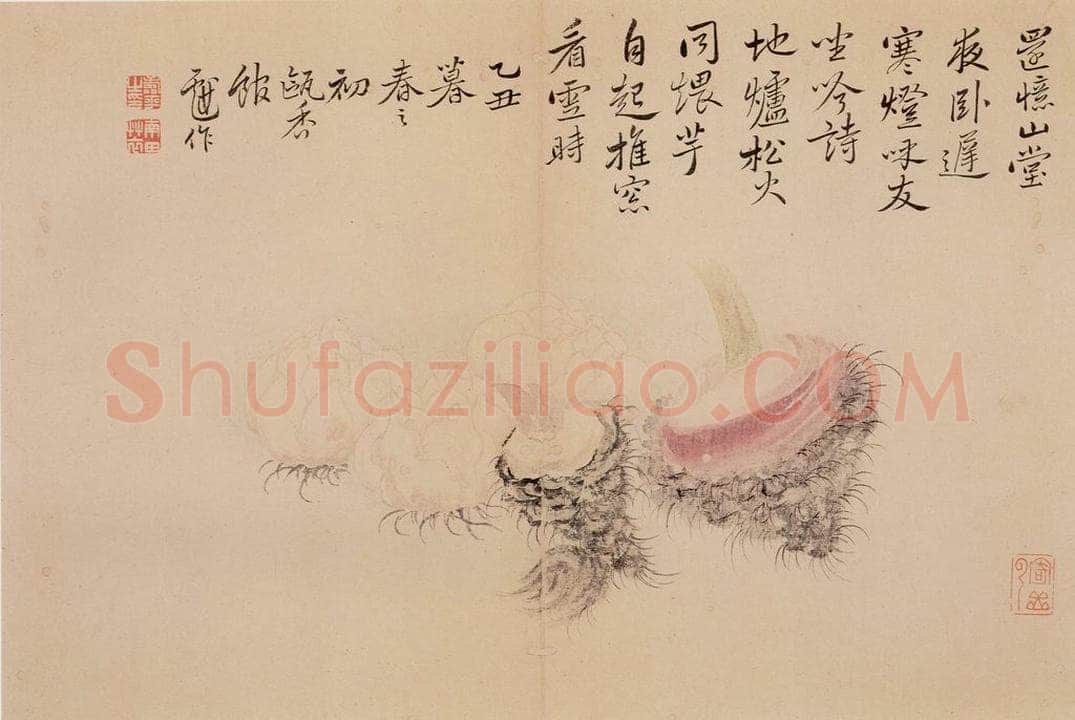 還憶山堂
夜卧遲
寒燈呼友
坐吟詩
地爐松火
同煨芋
自起推窓
看雪時
乙丑
暮
春之
初
甌香
館
戲作
南田草衣
Shufaziliao.COM